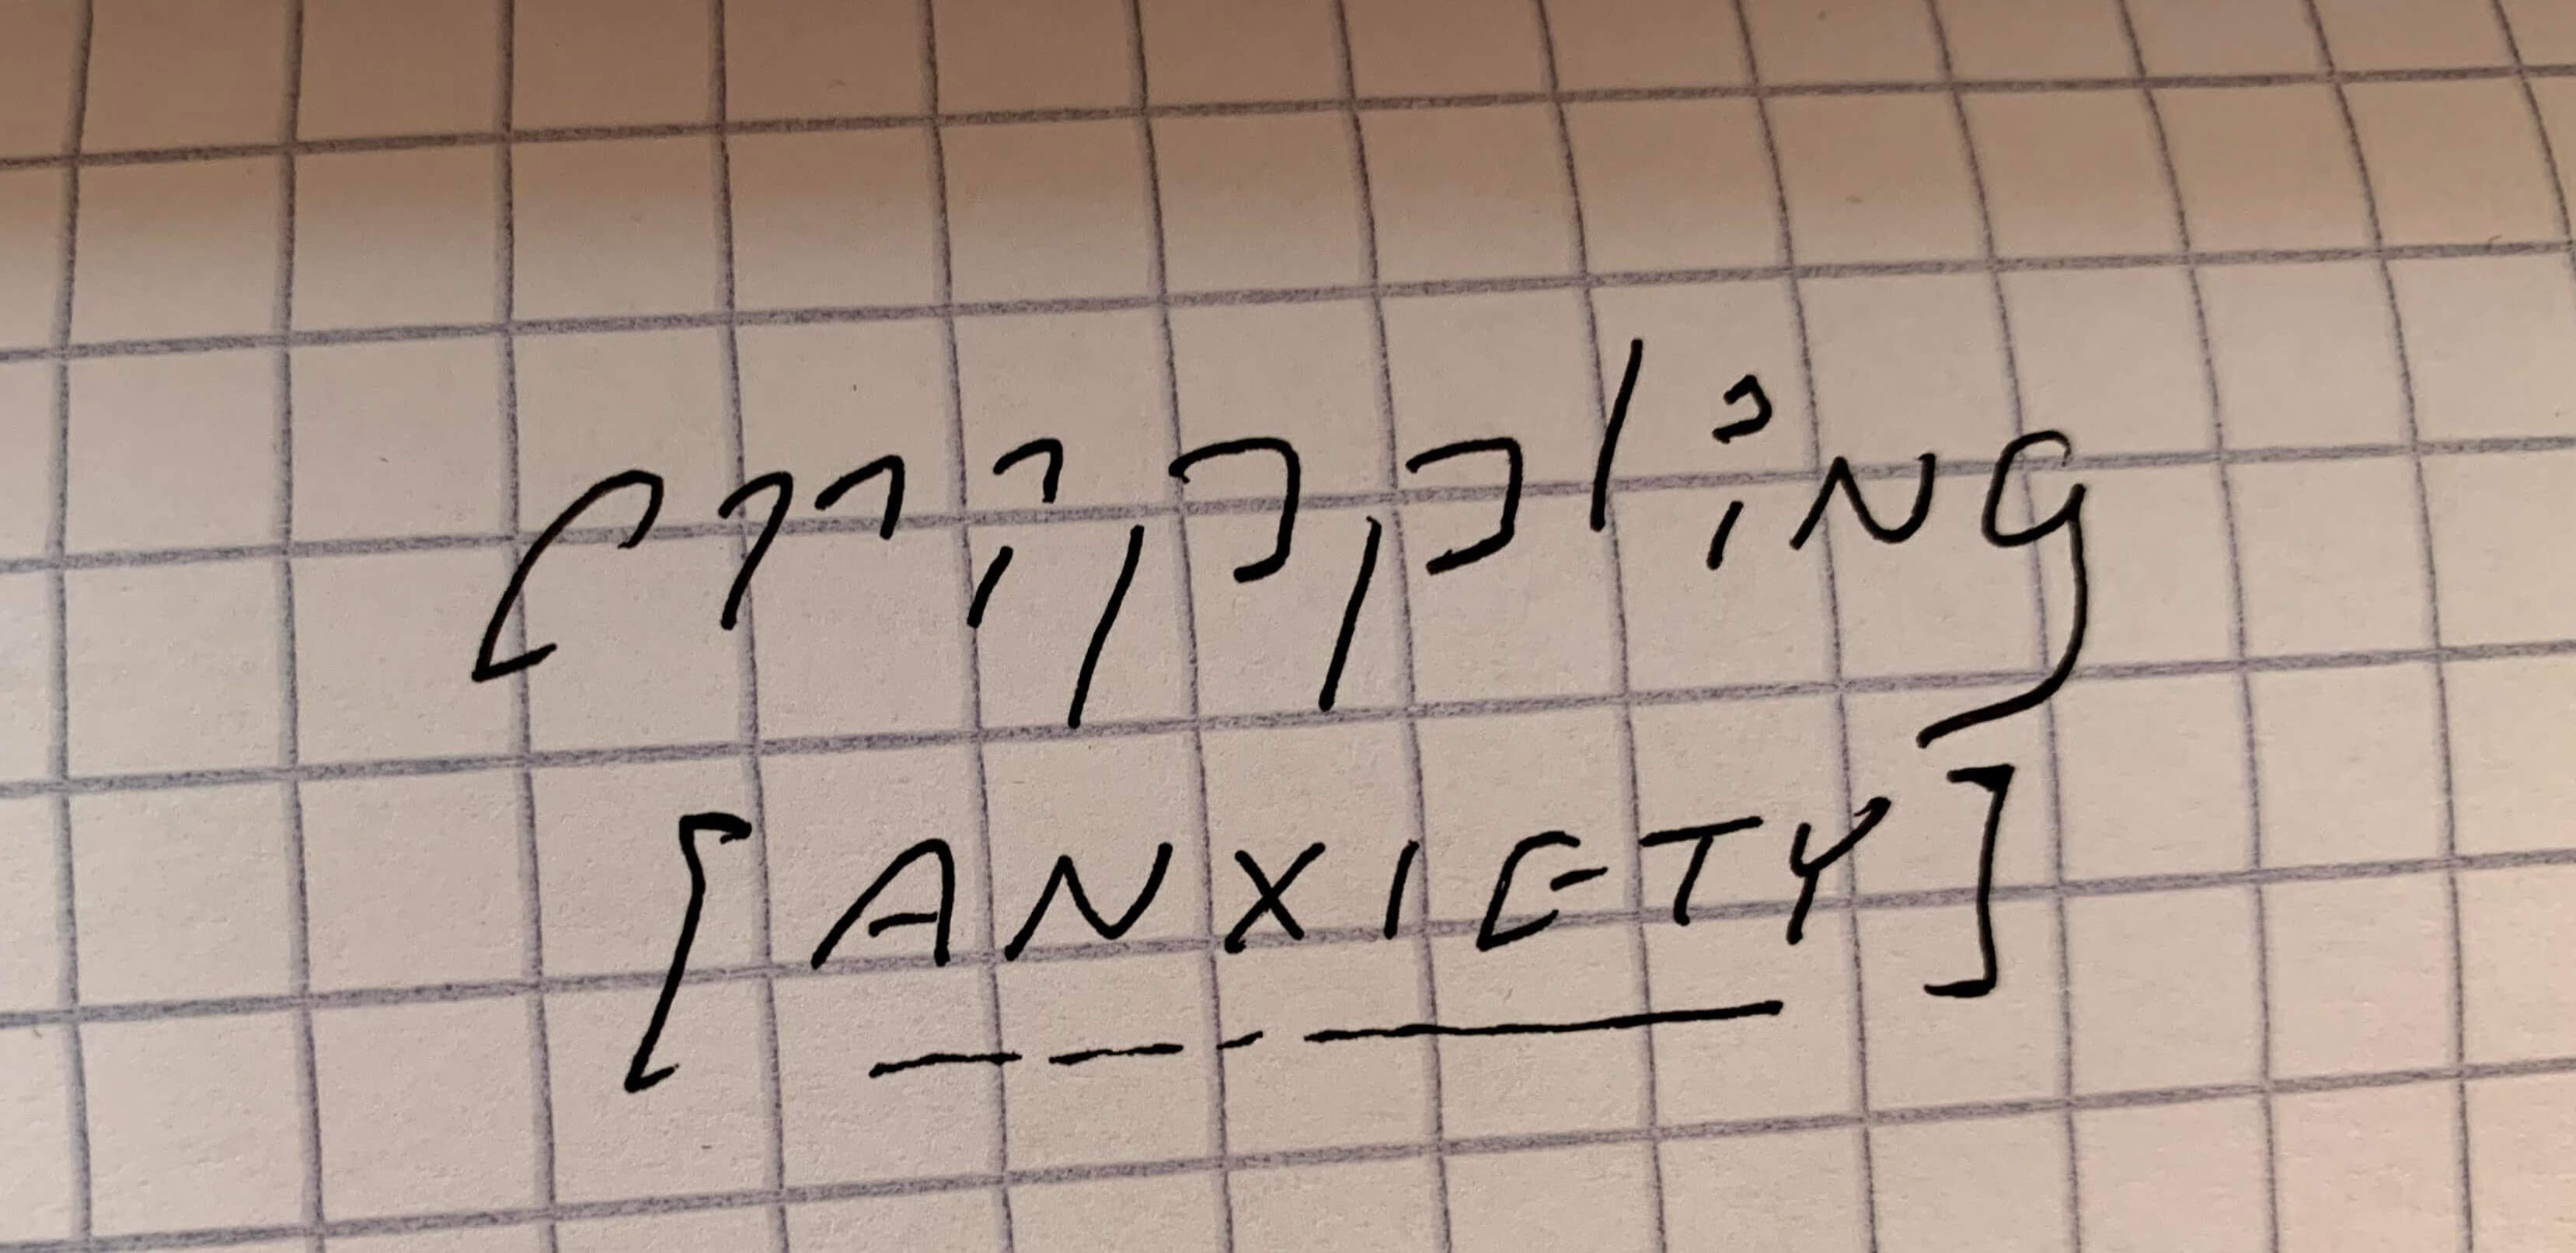 Crippling
[ANXIETY]